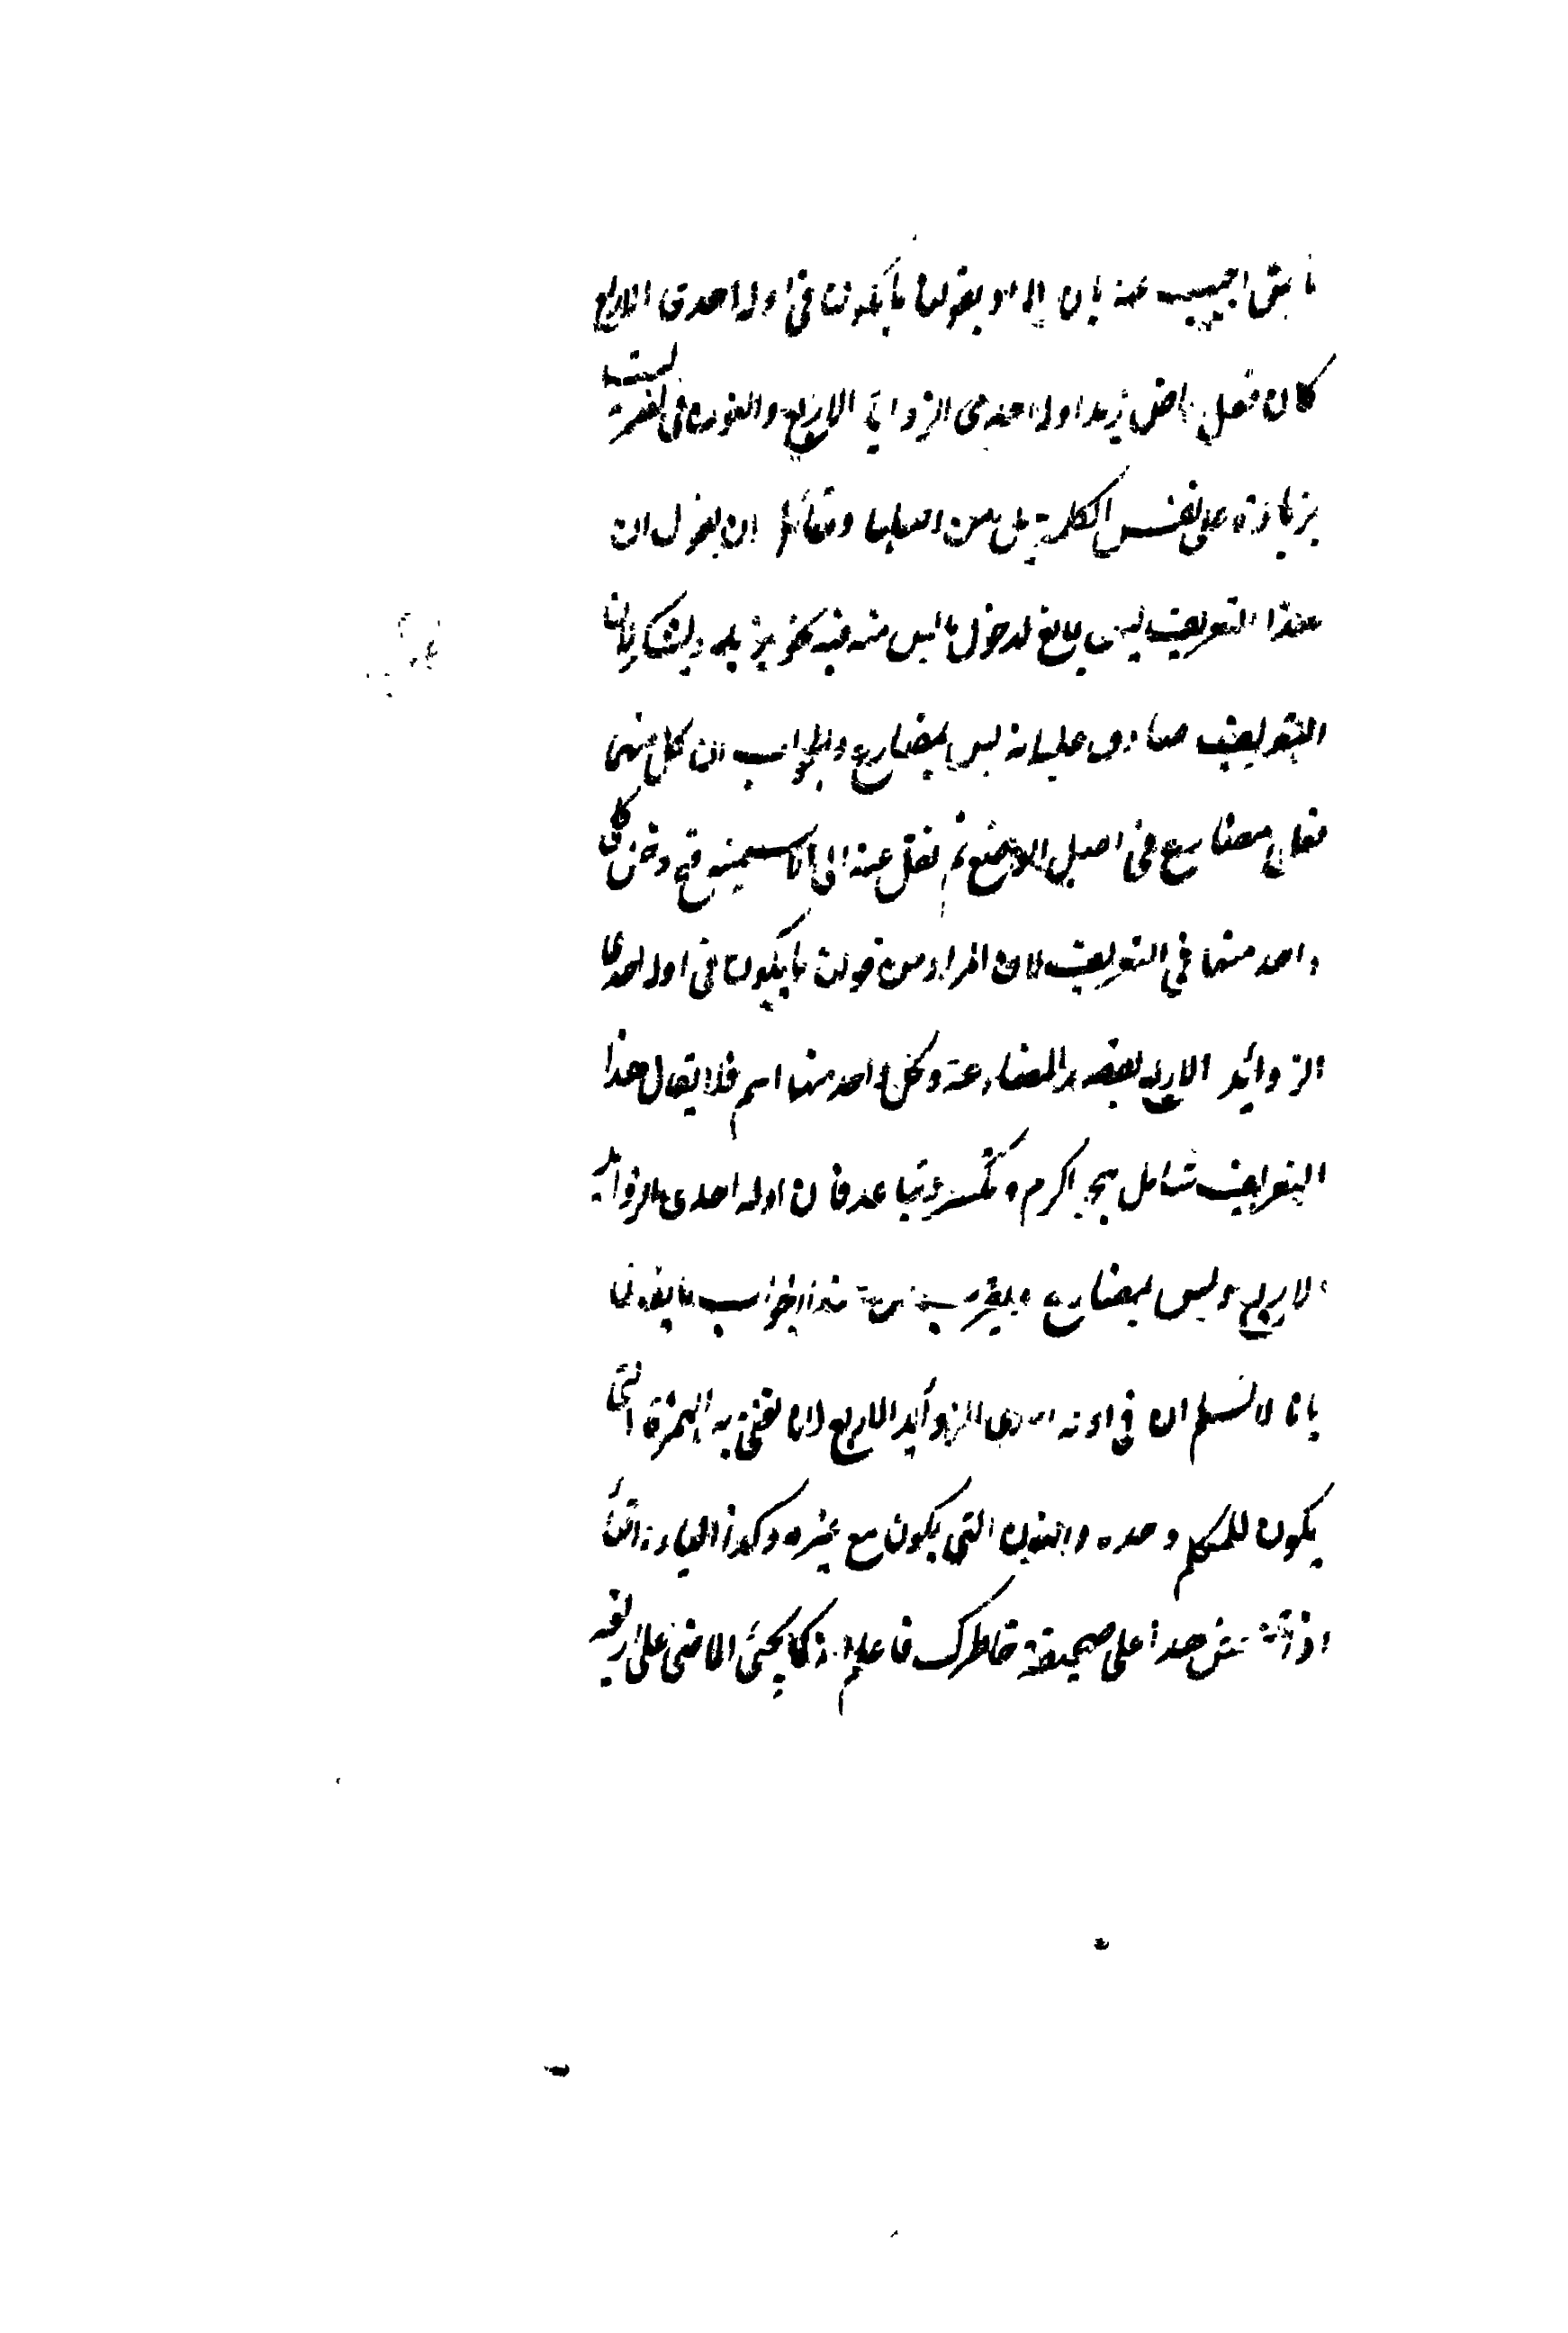 ماض اجيب عنه بان المراد بقولنا ما يكون في اوله احدى الاربع
كان فعل ماض زيد اوله احدى الزوائد الاربع والنون في نصر ليست
بزيادة على نفس الكلمة بل من اصلها ولقائل ان يقول ان
هذا التعريف ليس بمانع لدخول ما ليس منه فيه نحو يزيد ويشكر لان
التعريف صادق عليه انه ليس بمضارع والجواب ان كل منهما
فعل مضارع في اصل الوضع ثم نقل عنه الى الاسمية فح دخل كل
واحد منهما في التعريف لان المراد من قولنا ما يكون في اوله احدى
الزوائد الاربع بقصد المضارعة وكل واحد منهما اسم فلا يقال هذا
التعريف شامل نحو اكرم وتكسر وتباعد فان اوله احدى الزوائد
الاربع وليس بمضارع ويقرب من هذا الجواب ما يقال
بانا لا نسلم ان في اوله احدى الزوائد الاربع لانا نعني به الهمزة التي
يكون للمتكلم وحده والنون التي يكون مع غيره وكذا الياء والتاء
اذا انتقش هذا على صحيفة خاطرك فاعلم انه كما يجئ الماضي على اربعة